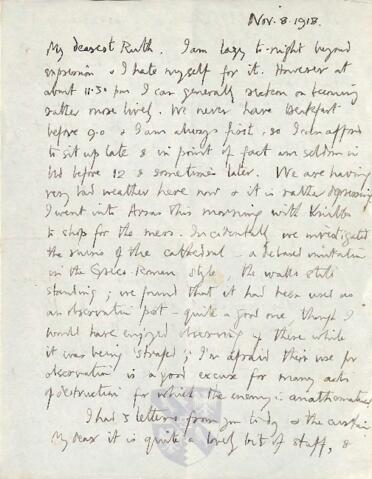 Nov. 8. 1918.
My dearest Ruth. I am lazy to-night beyond
expression & I hate myself for it. However at
about 11.30 pm I can generally reckon on becoming
rather more lively. We never have breakfast
before 9.0 & I am always first, so I can afford
to sit up late & in point of fact am seldom in
bed before 12 & sometimes later. We are having
very bad weather here now & it is rather depressing
I went into Arras this morning with
to shop for the mess. Incidentally we investigated
the ruins of the cathedral – a debased imitation
in the Greco-Roman style, the walls still
standing; we found that it had been used as
an observation post – quite a good one, though I
would have enjoyed observing up there while
it was being strafed; I'm afraid their use for
observation is a good excuse for many acts
of destruction for which the enemy is anathematized
I had 3 letters from you today & the curtain
My dear it is quite a lovely bit of stuff, &